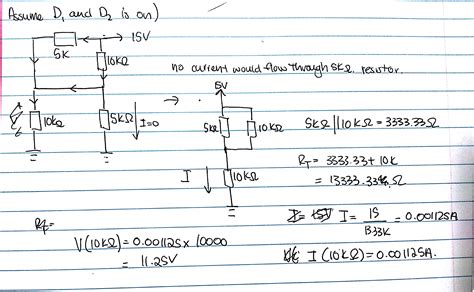 Assume D₁ and D₂ is on)
15V
5K
10KΩ
no current would flow through 5KΩ resistor.
10kΩ
5KΩ
I=0
→
5V
5kΩ
10KΩ
5KΩ || 10KΩ = 3333.33Ω
I
10KΩ
R_T = 3333.33 + 10K
= 13333.33Ω
I = 15/13.33K = 0.001125A
V(10KΩ) = 0.001125 x 10000
= 11.25V
I (10KΩ) = 0.001125A.